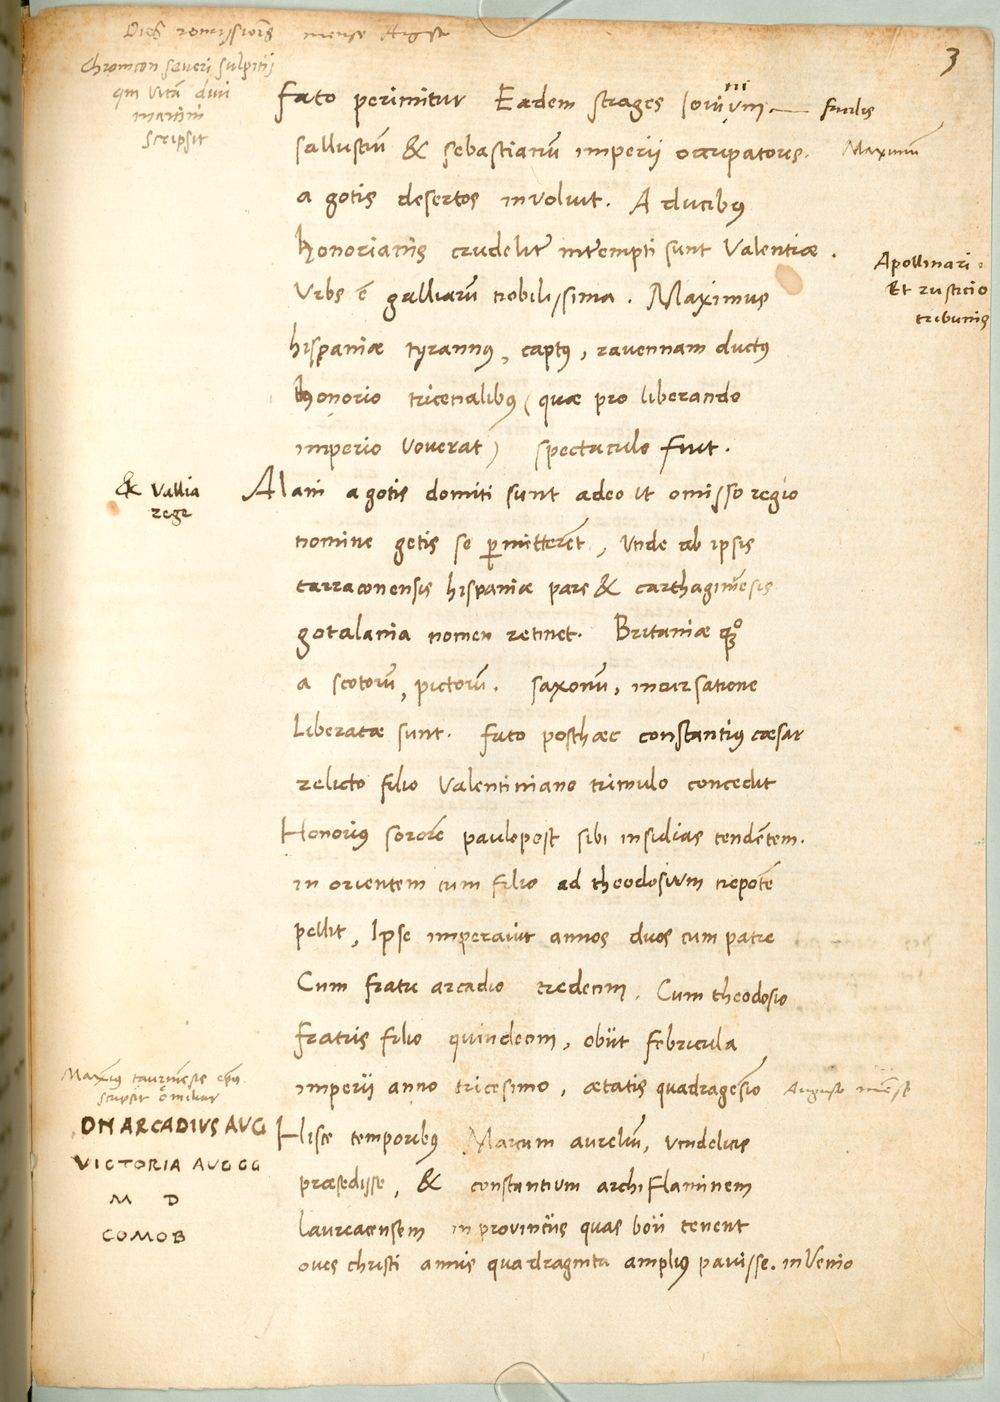 3
Dies remissionis mense Agst
Chronicon severi sulpitij
qui vitā divi
martini
scripsit
fato perimitur Eadem strages Ioviūm
sallustiū & sebastianū imperij occupatores.
Maximū
a gotis desertos involvit. A ducibus
honorianis crudelit̄ int̄empti sunt Valentiæ.
Apollinari
Et rusticio
tribunis
Urbs ē galliarū nobilissima. Maximus
hispaniæ tyrannus, captus, ravennam ductus
honorio tricenalibus (quæ pro liberando
imperio voverat) spectaculo fuit.
& Vallia
rege
Alani a gotis domiti sunt adeo ut omisso regio
nomine getis se ꝑmitterēt, unde ab ipsis
tarraconensis hispaniæ pars & carthaginēsis
gotalania nomen retinet. Britaniæ qꝫ
a scotorū, pictorū. saxonū, incursatione
Liberatæ sunt. fato posthæc constantius cæsar
relicto filio Valentiniano trimulo concedit
Honorius sororē paulopost sibi insidias tendētem.
in orientem cum filio ad theodosium nepotē
pellit, Ipse imperavit annos duos cum patre
Cum fratre arcadio tredecim. Cum theodosio
fratris filio quindecim, obiit febricula
imperii anno tricesimo, ætatis quadragesīo
Maxīus taurinēsis ep̄us
scripsit omilias
DN ARCADIVS AVG
VICTORIA AVGGG
M D
COMOB
Hisce temporibus Marcum aurelīu, vindelicis
præsedisse, & constantium archiflaminem
laureacensem in provintiis quas boii tenent
oves christi annis quadraginta amplius pavisse. invenio